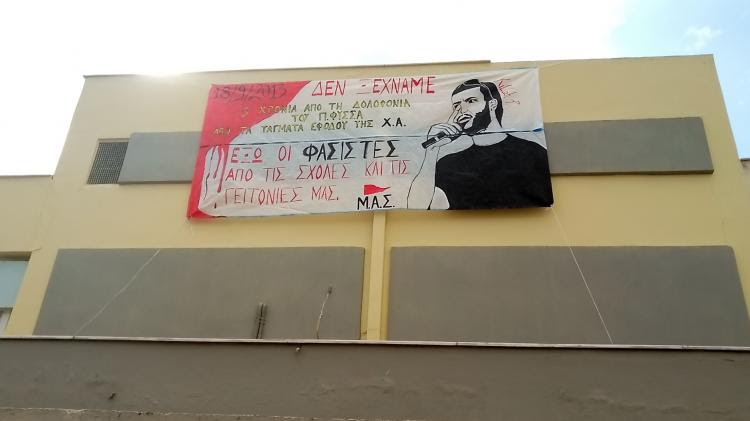 18/9/2013 ΔΕΝ ΞΕΧΝΑΜΕ
5 ΧΡΟΝΙΑ ΑΠΟ ΤΗ ΔΟΛΟΦΟΝΙΑ
ΤΟΥ Π.ΦΥΣΣΑ
ΑΠΟ ΤΑ ΤΑΓΜΑΤΑ ΕΦΟΔΟΥ ΤΗΣ Χ.Α.
ΕΞΩ ΟΙ ΦΑΣΙΣΤΕΣ
ΑΠΟ ΤΙΣ ΣΧΟΛΕΣ ΚΑΙ ΤΙΣ
ΓΕΙΤΟΝΙΕΣ ΜΑΣ.
Μ.Α.Σ.